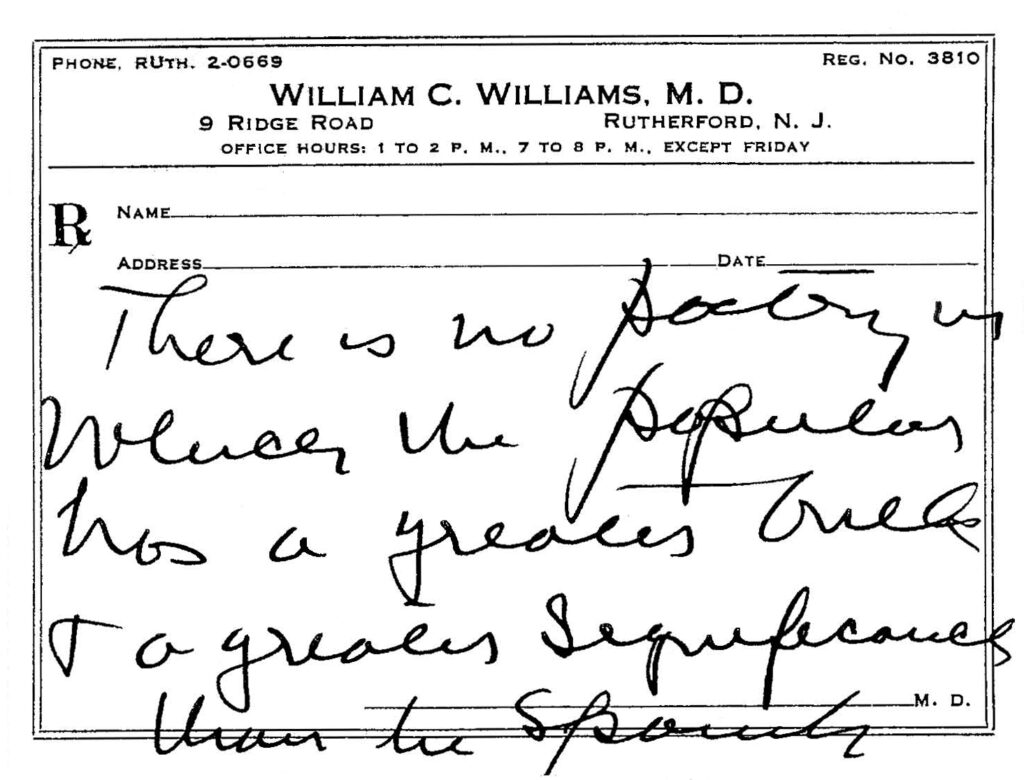 PHONE, RUTH. 2-0669 REG. NO. 3810
WILLIAM C. WILLIAMS, M. D.
9 RIDGE ROAD RUTHERFORD, N. J.
OFFICE HOURS: 1 TO 2 P. M., 7 TO 8 P. M., EXCEPT FRIDAY
℞ NAME
ADDRESS DATE
There is no poetry in
which the popular
has a greater bulk
& a greater significance
than the Spanish
M. D.